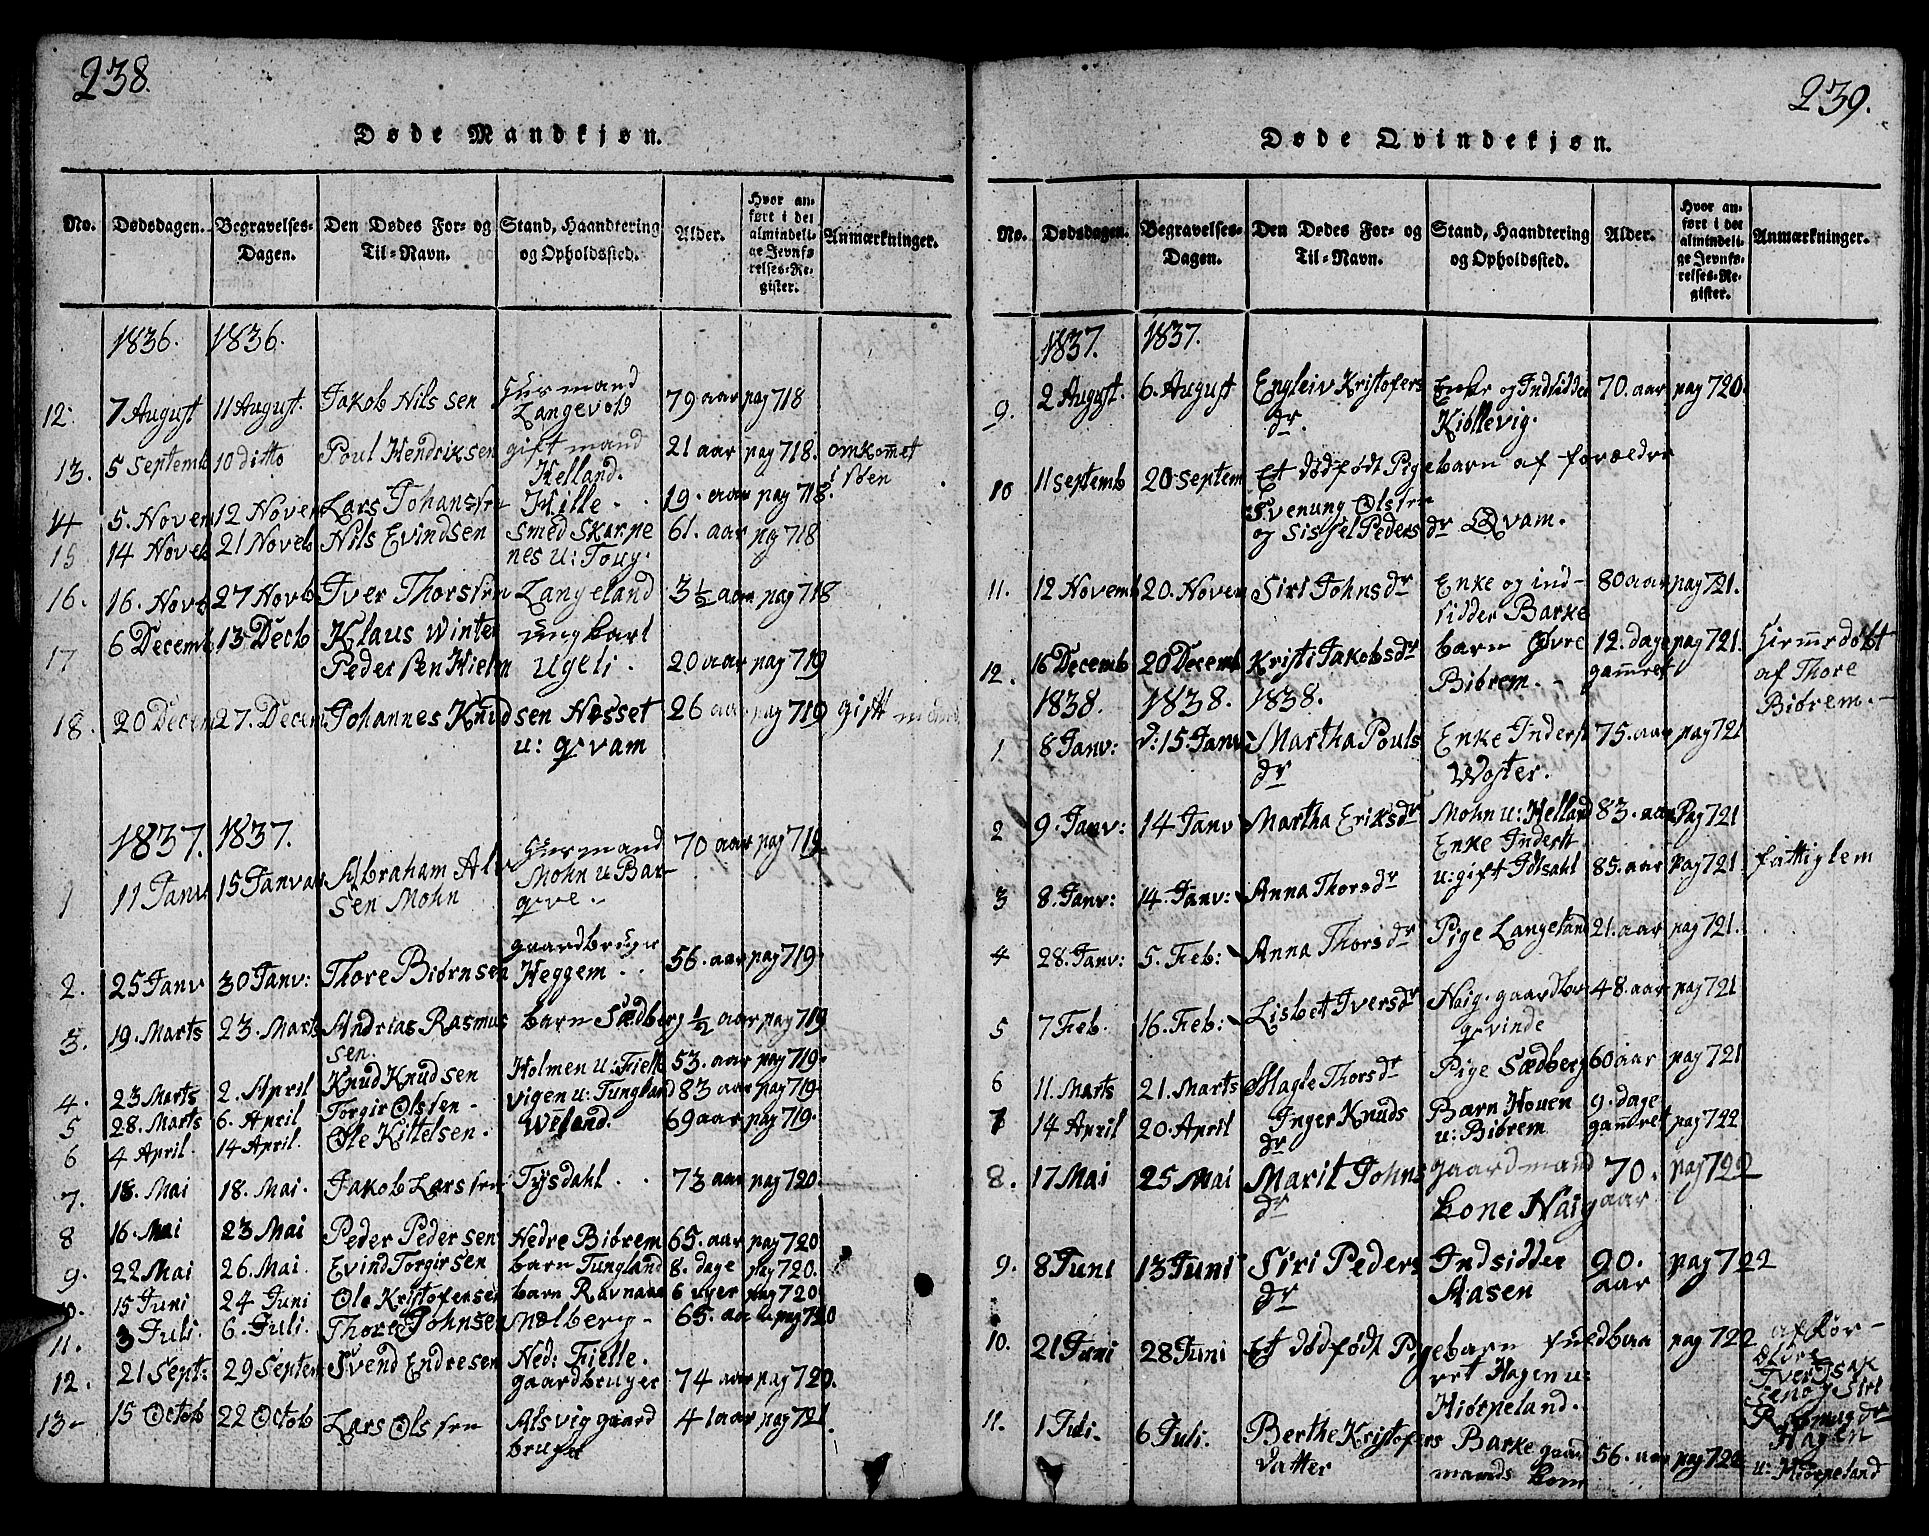 238.
Døde Mandkjøn.
No. Dødsdagen. Begravelses-Dagen. Den Dødes For- og Til-Navn. Stand, Haandtering og Opholdssted. Alder. Hvor anført i det almindelige Jevnførelses-Register. Anmærkninger.
1836. 1836.
12. 7 August 11 August. Jakob Nilssen Huusmand Langevold 79 aar pag 718
13. 5 Septemb 10 ditto Poul Hendriksen gift mand Helland. 21 aar pag 718. omkom̄et i Søen
14 5. Novem 12 Novem Lars Johanssen Hille. 19. aar pag 718.
15 14 Noveb 21 Noveb Nils Evindsen Smed Skarne nes u: Toug. 61. aar pg 718
16. 16. Novb 27 Novb Iver Thorssen Langeland 3½ aar pag 718
17 6 Decemb 13 Decb Klaus Winter Pedersen Hielm ungkarl Ugeli. 20 aar pag 719
18. 20 Decem 27. Decem Johannes Knudsen Nesset u: qvam 26 aar pag 719 gift mand
1837. 1837.
1 11 Janv 15 Januar Abraham Al sen Mohn Huusmand Mohn u Bar- qve. 70 aar pag 719
2. 25 Janv 30 Janv: Thore Biørnsen gaardbruger Heggem. 56. aar pag 719
3. 19. Marts 23. Marts Andrias Rasmus sen. barn Sædberg ½ aar pag 719
4. 23 Marts 2. April Knud Knudsen Holmen u: Fielle 53. aar pag 719.
5 28. Marts 6. April Torgir Olssen - vigen u: Tungland 83 aar pag 719
6 4 April. 14 April. Ole Kittelsen. Weland. 69 aar pag 719.
7. 18. Mai 18. Mai. Jakob Larssen Tysdahl. 73 aar pag 720.
8 16. Mai 23 Mai Peder Pedersen Nedre Biørem 65. aar pag 720
9. 22 Mai 26. Mai. Evind Torgirsen barn Tungland 8. dage pag 720.
10. 15 Juni 24 Juni Ole Kristofersen barn Ravnaas 6 uger pag 720
11. 3 Juli. 6. Juli. Thore Johnsen Mølberg - 65. aar pag 720
12. 21 Sept: 29 Septem Svend Endresen Ned: Fielle. gaardbruger 74 aar pag 720.
13- 15 Octob 22 Octob Lars Olssen Alsvig gaard bruger 41 aar pag 721.
239.
Døde Qvindekjøn.
No. Dødsdagen. Begravelses-Dagen. Den Dødes For- og Til-Navn. Stand, Haandtering og Opholdssted. Alder. Hvor anført i det almindelige Jevnførelses-Register. Anmærkninger.
1837. 1837.
9. 2 August. 6. August Engleiv Kristofers dr. Enke og Indsidder Kiøllevig. 70. aar pag 720.
10 11 Septemb 20 Septem Et dødfødt Pigebarn af forældre Svenung Olssen og Sissel Peders dr Qvam.
11. 12 Novemb 20. Novem Siri Johnsdr Enke og ind- sidder Barke 80 aar pag 721.
12. 16 Decemb 20 Decemb Kristi Jakobsdr barn Øvre Biørem. - 12. dage gam̄ret pag 721. Hiem̄edøbt af Thore Biørem. -
1838. 1838. 1838.
1. 8 Janv: d: 15 Janv Martha Pouls dr Enke Inderst Woster. 75. aar pag 721
2 9. Janv: 14 Janv Martha Eriksdr Mohn u: Helland Enke Inderst 83. aar Pag 721
3 8. Janv: 14. Janv: Anna Thorsdr u: gift Idsahl 85. aar pag 721 fattiglem
4 28. Janv: 5. Feb: Anna Thorsdr Pige Langeland 21. aar pag 721.
5 7 Feb. 16. Feb: Lisbet Iversdr Naig. gaardbr qvinde 48. aar pag 721
6 11. Marts 21. Marts Magle Thorsdr Pige Sædberg 60 aar pag 721
7 14 April 20. April Inger Knuds dr Barn Hoven u: Biørem 9. dage gam̄ret pag 722
8. 17 Mai 25 Mai Marit Johns dr gaardmand kone Naig 70. aar pag 722
9. 8 Juni 13 Juni Siri Peders dr Indsidder Aasen 90. aar pag 722
10. 21 Juni 28 Juni Et dødfødt Pigebarn fuldbaa ret Hagen u: Hiørpeland. pag 722 af For- ældre Iver Isak sen og Siri Rasmusdr Hagen u: Hiørpeland
11. 1 Juli. 6 Juli. Berthe Kristofers datter Barke gaard mands kone 56. aar pag 722